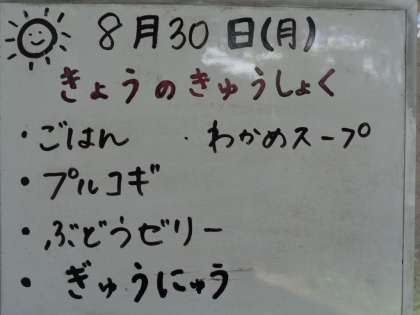 8月30日(月)
きょうのきゅうしょく
・ごはん ・わかめスープ
・プルコギ
・ぶどうゼリー
・ぎゅうにゅう